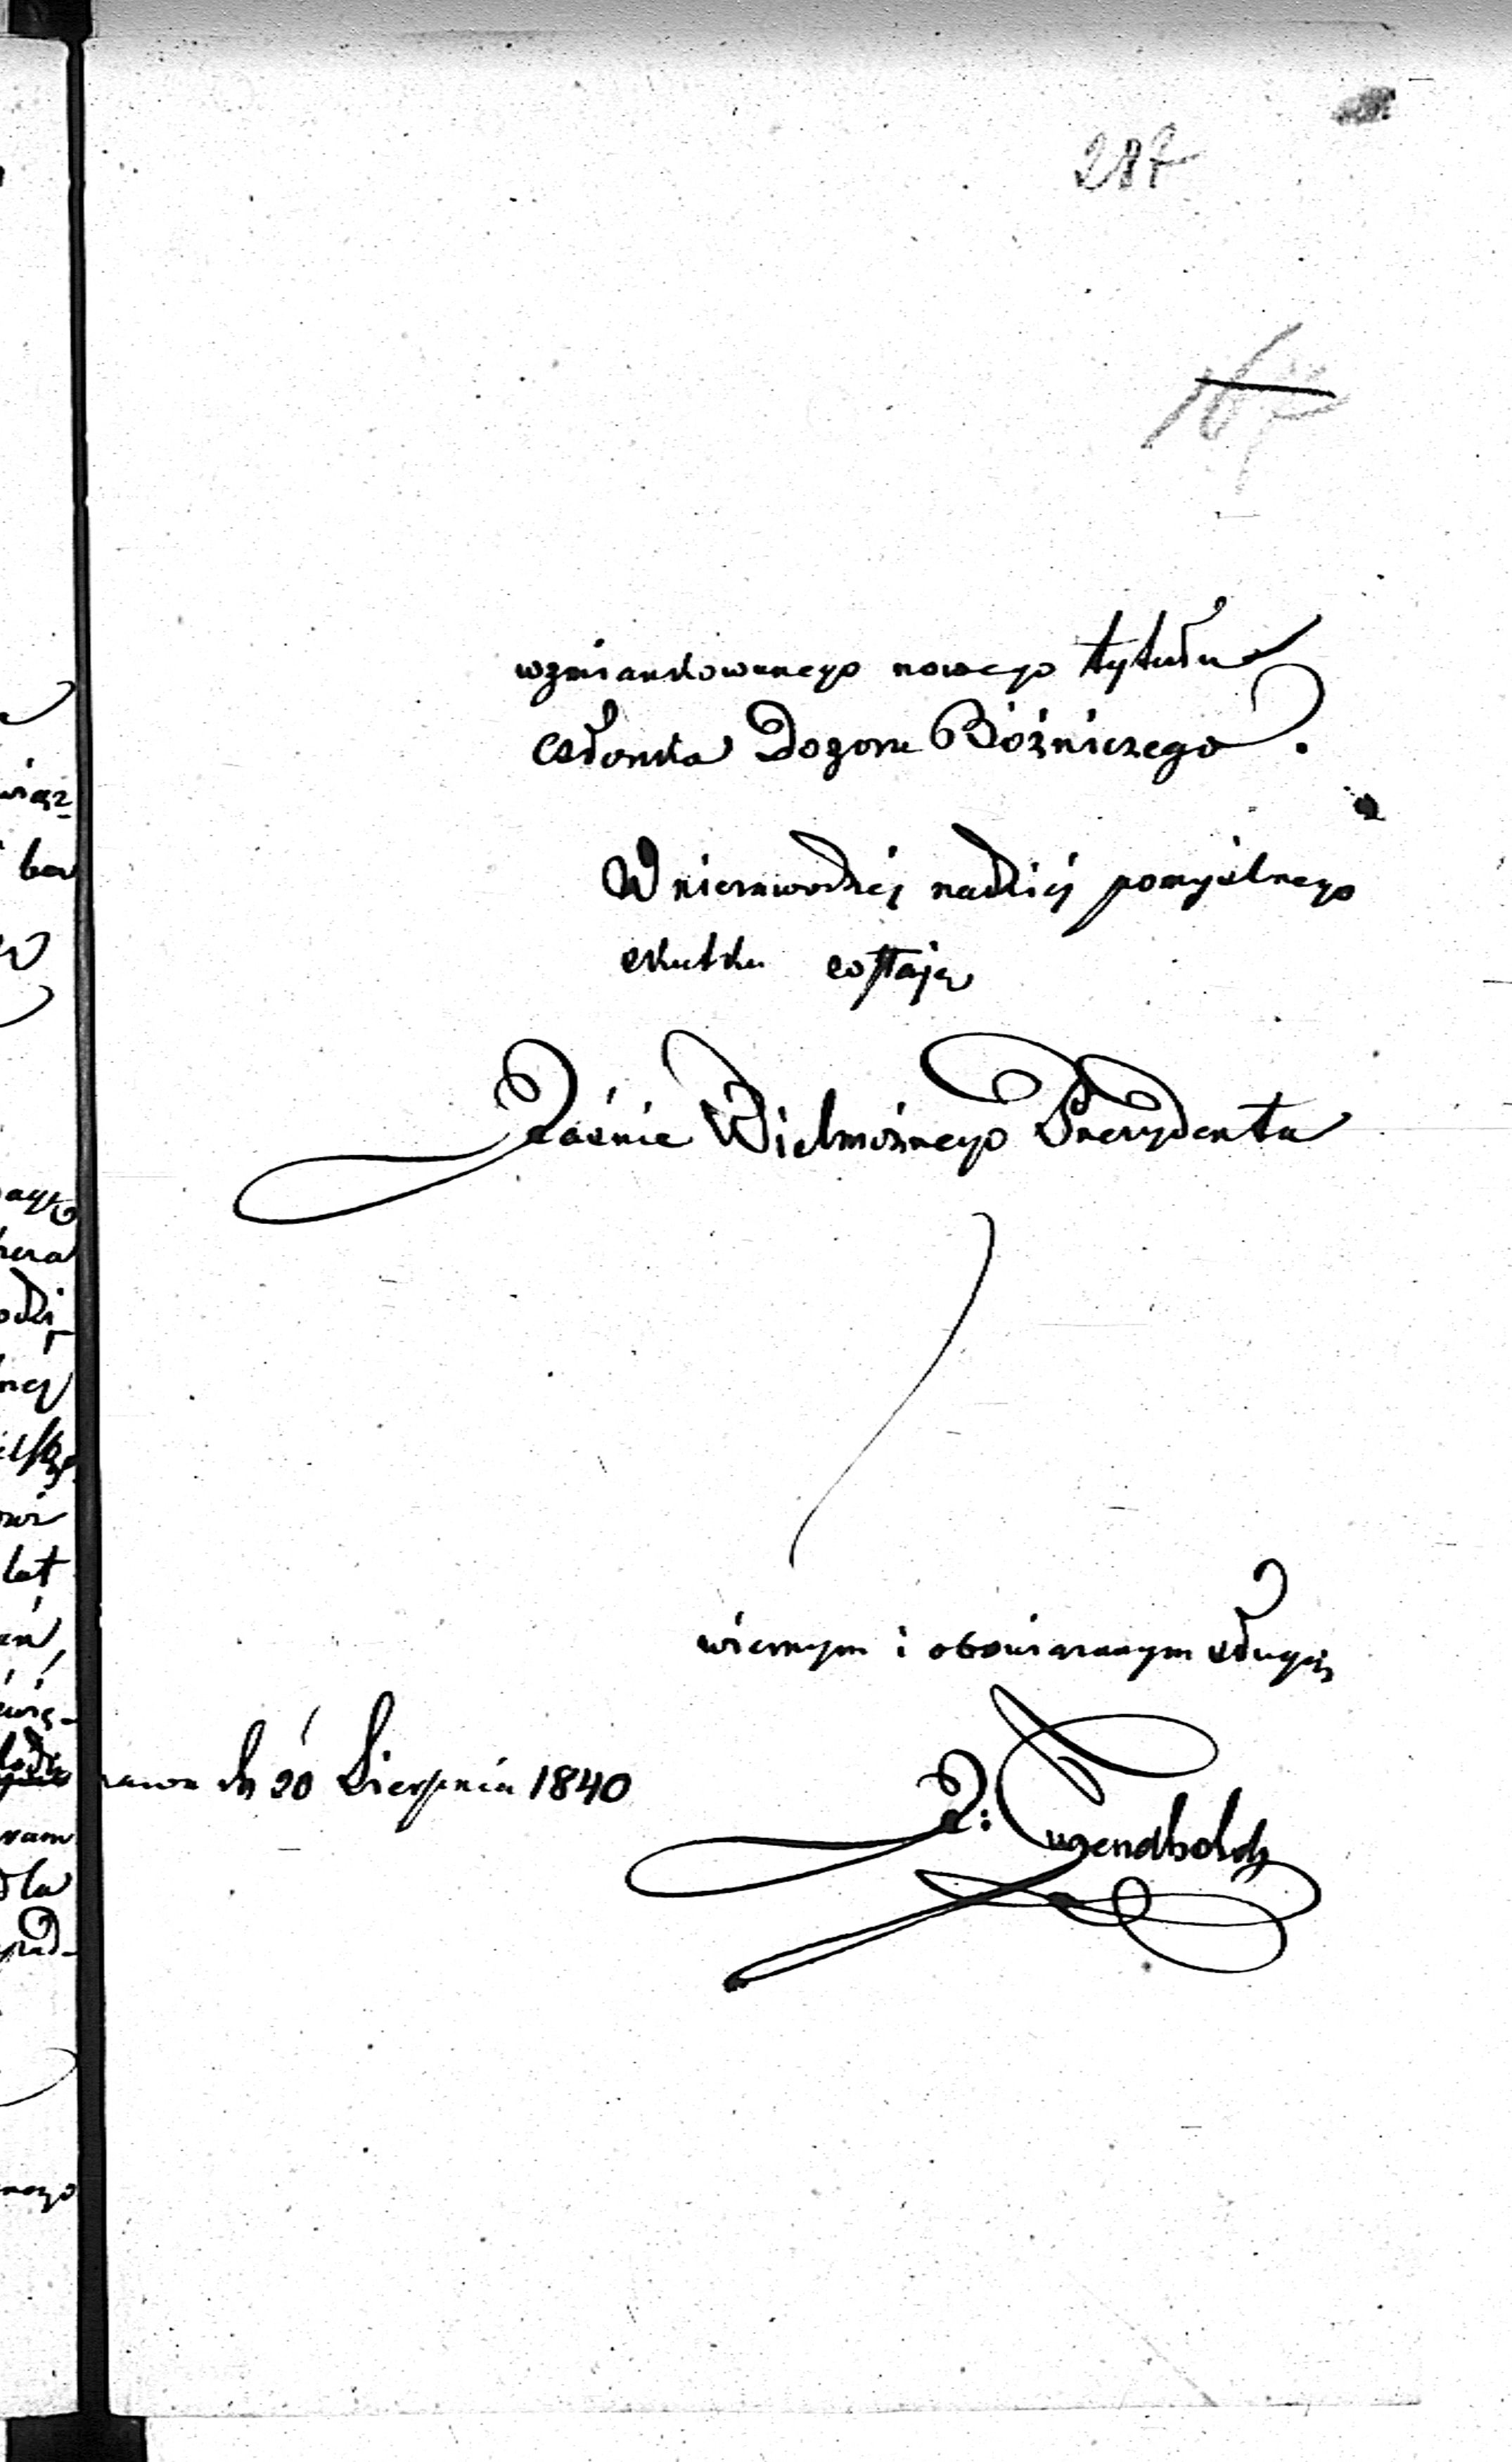 287
167
wzmiankowanego nowego tytułu
członka Dozoru Bóżniczego.
W niezawodnéj nadziei pomyślnego
skutku zostaję
Jaśnie Wielmożnego Prezydenta
wiernym i obowiązanym sługą
dn 20 Sierpnia 1840
J: Tugendhold
więz
ba
lat
dla